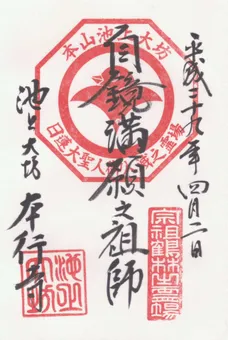 平成二十九年四月二日
自鏡満願之祖師
池上大坊
本行寺
本山池上大坊
日蓮大聖人
之霊場
宗祖鶴林霊場
池上大坊